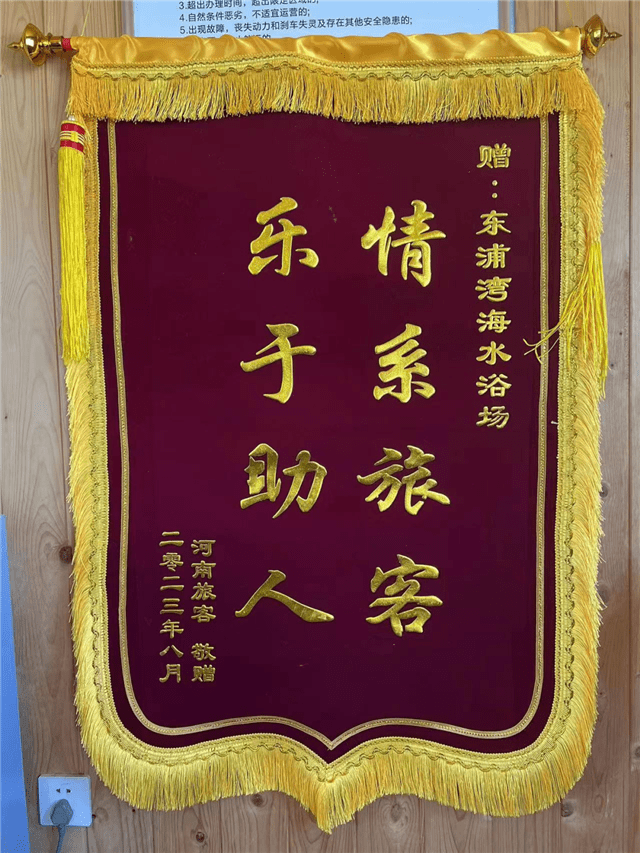 3.超出办理时间，超出限定区域的；
4.自然条件恶劣，不适宜运营的；
5.出现故障，丧失动力和刹车失灵及存在其他安全隐患的；
赠：东浦湾海水浴场
情系旅客
乐于助人
河南旅客 敬赠
二零二三年八月